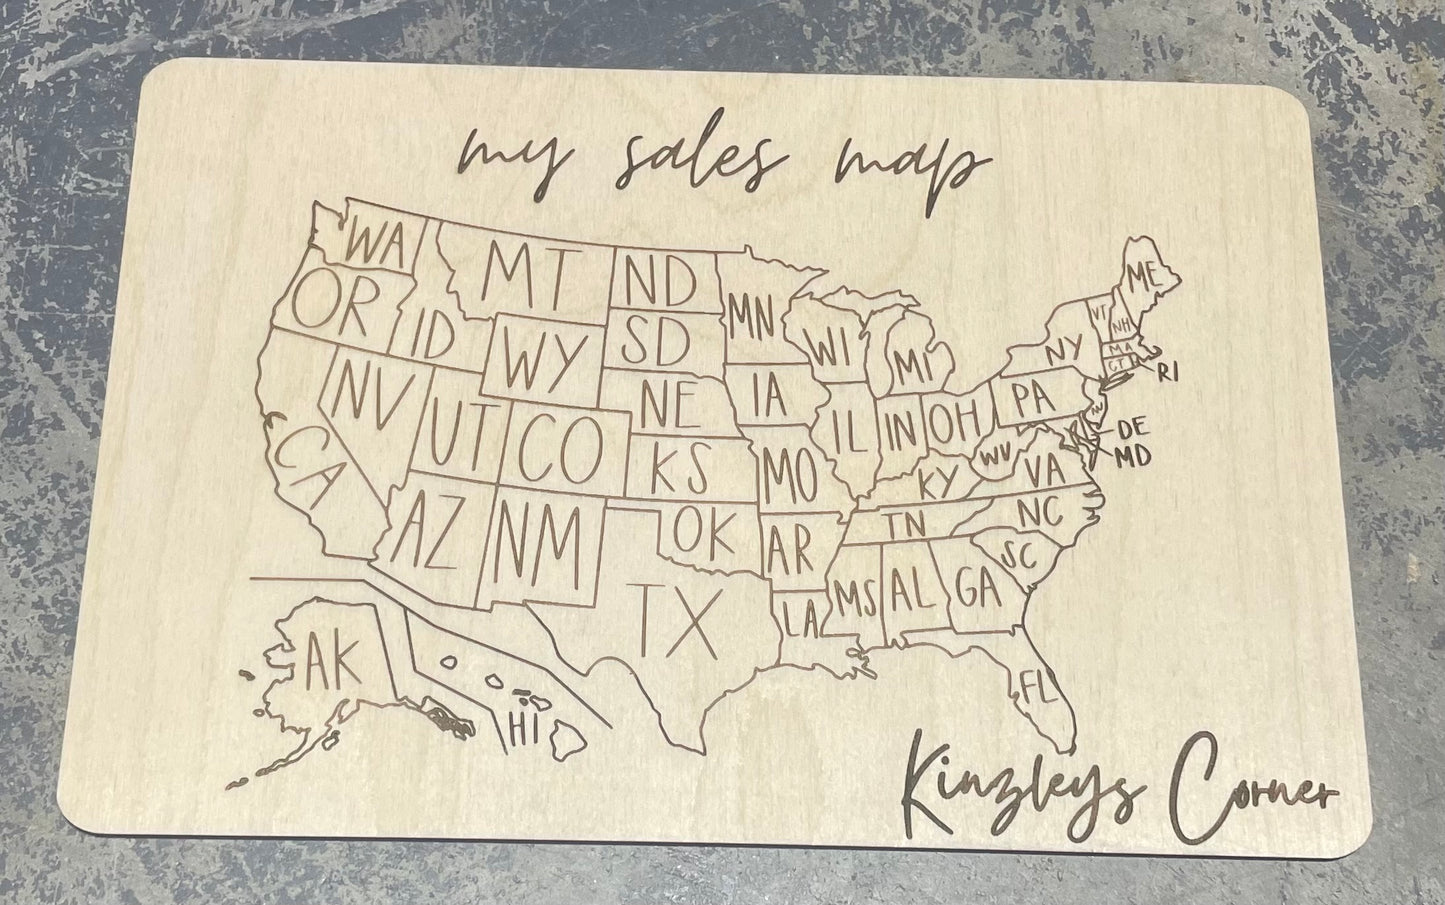 my sales map
WA
MT
ND
MN
ME
OR
ID
WY
SD
WI
MI
NY
VT
NH
MA
CT
RI
NV
UT
CO
NE
IA
IL
IN
OH
PA
NJ
DE
MD
CA
AZ
NM
KS
MO
KY
WV
VA
OK
AR
TN
NC
TX
LA
MS
AL
GA
SC
FL
AK
HI
Kinzleys Corner